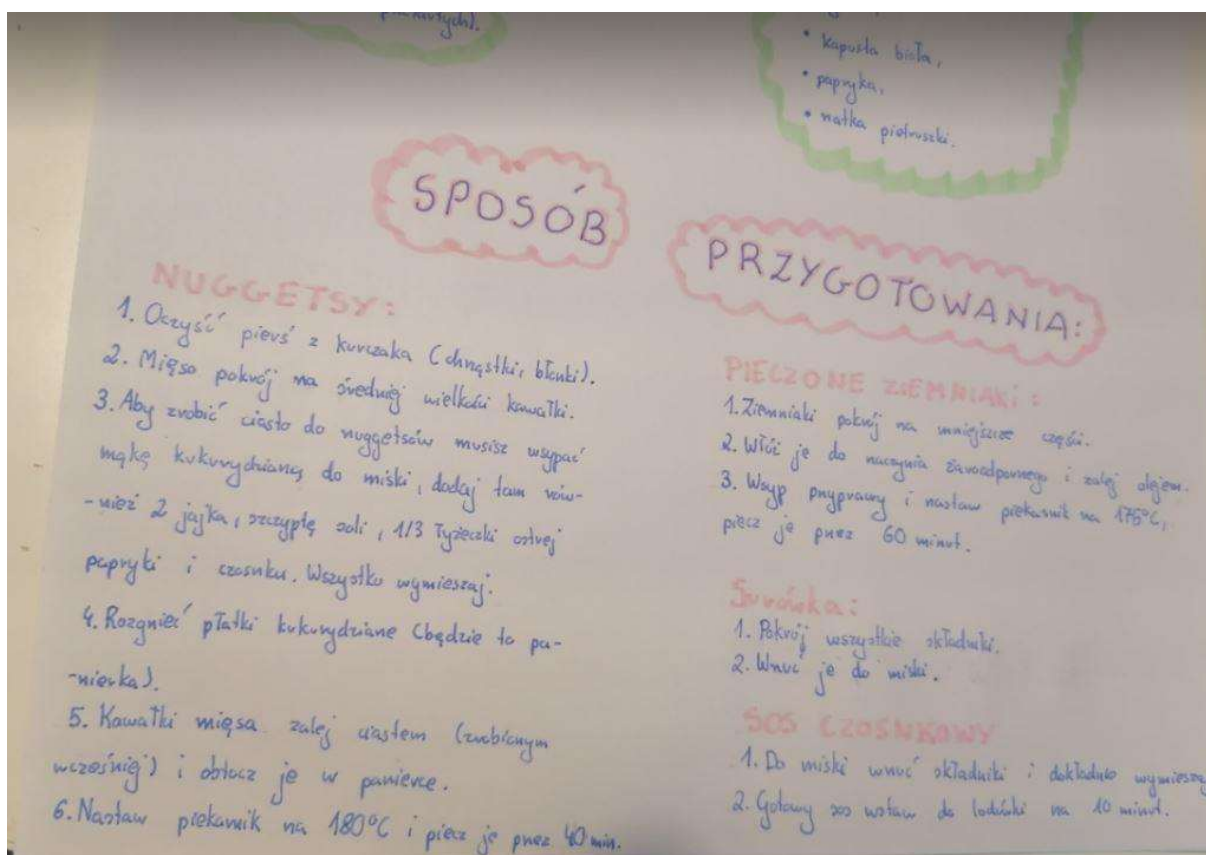 • kapusta biała,
• papryka,
• natka pietruszki.
SPOSÓB
PRZYGOTOWANIA:
NUGGETSY:
1. Oczyść pierś z kurczaka (chrząstki, błonki).
2. Mięso pokrój na średniej wielkości kawałki.
3. Aby zrobić ciasto do nuggetsów musisz wsypać
mąkę kukurydzianą do miski, dodaj tam rów-
-nież 2 jajka, szczyptę soli, 1/3 łyżeczki ostrej
papryki i czosnku. Wszystko wymieszaj.
4. Rozgnieć płatki kukurydziane (będzie to pa-
-nierka).
5. Kawałki mięsa zalej ciastem (zrobionym
wcześniej) i obtocz je w panierce.
6. Nastaw piekarnik na 180°C i piecz je przez 40 min.
PIECZONE ZIEMNIAKI:
1. Ziemniaki pokrój na mniejsze części.
2. Włóż je do naczynia żaroodpornego i zalej olejem.
3. Wsyp przyprawy i nastaw piekarnik na 175°C,
piecz je przez 60 minut.
Surówka:
1. Pokrój wszystkie składniki.
2. Wrzuć je do miski.
SOS CZOSNKOWY
1. Do miski wrzuć składniki i dokładnie wymieszaj
2. Gotowy sos wstaw do lodówki na 10 minut.